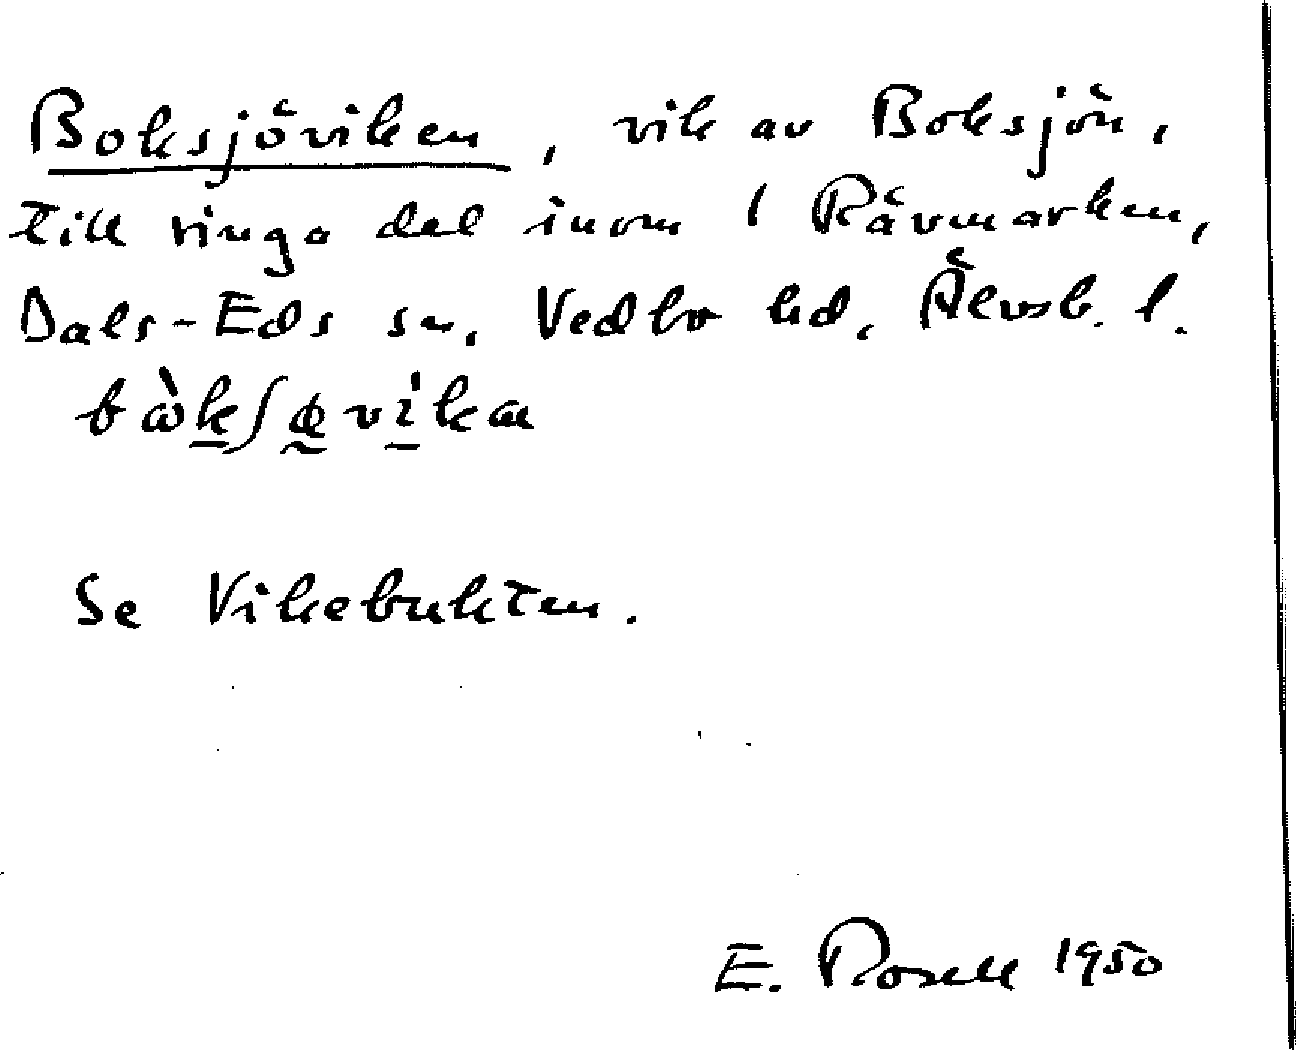 Boksjöviken, vik av Boksjön,
till ringa del inom 1 Rävmarken,
Dals-Eds sn, Vedbo hd, Älvsb. l.
Se Vikebukten.
E. Rosell 1950